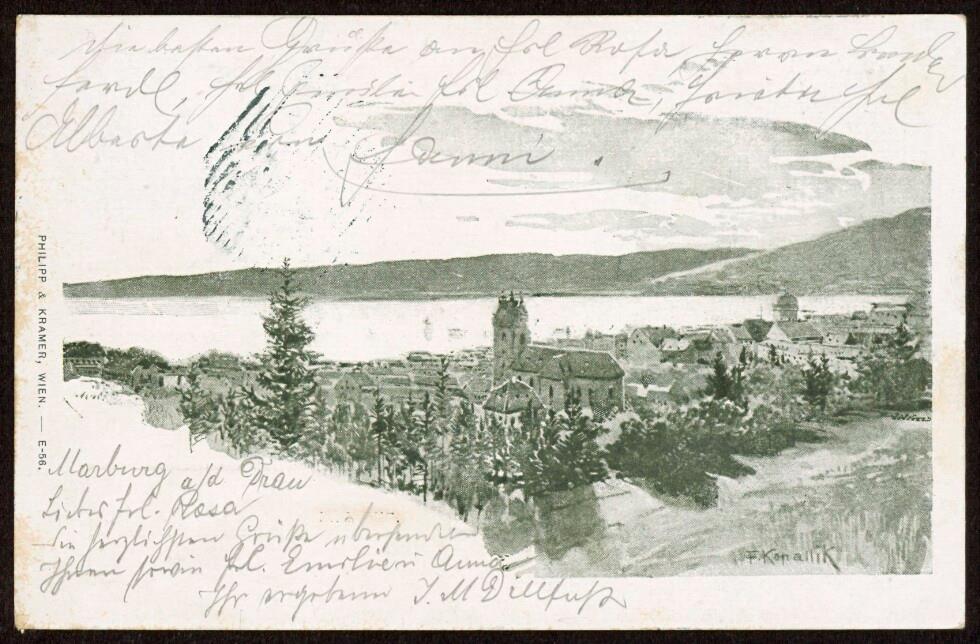 Die besten Grüße an Frl Rosa Herrn Bruder
Ferdl, Frl Emilie Frl Anna, Frl
Alberta Fanni.
PHILIPP & KRAMER, WIEN. — E-56.
Marburg a/d Drau
Liebes Frl. Rosa
Die herzlichsten Grüße übersendet
Ihnen sowie Frl. Emilie u Anna
Ihr ergebener J. M Dillfuß
F. Konallik